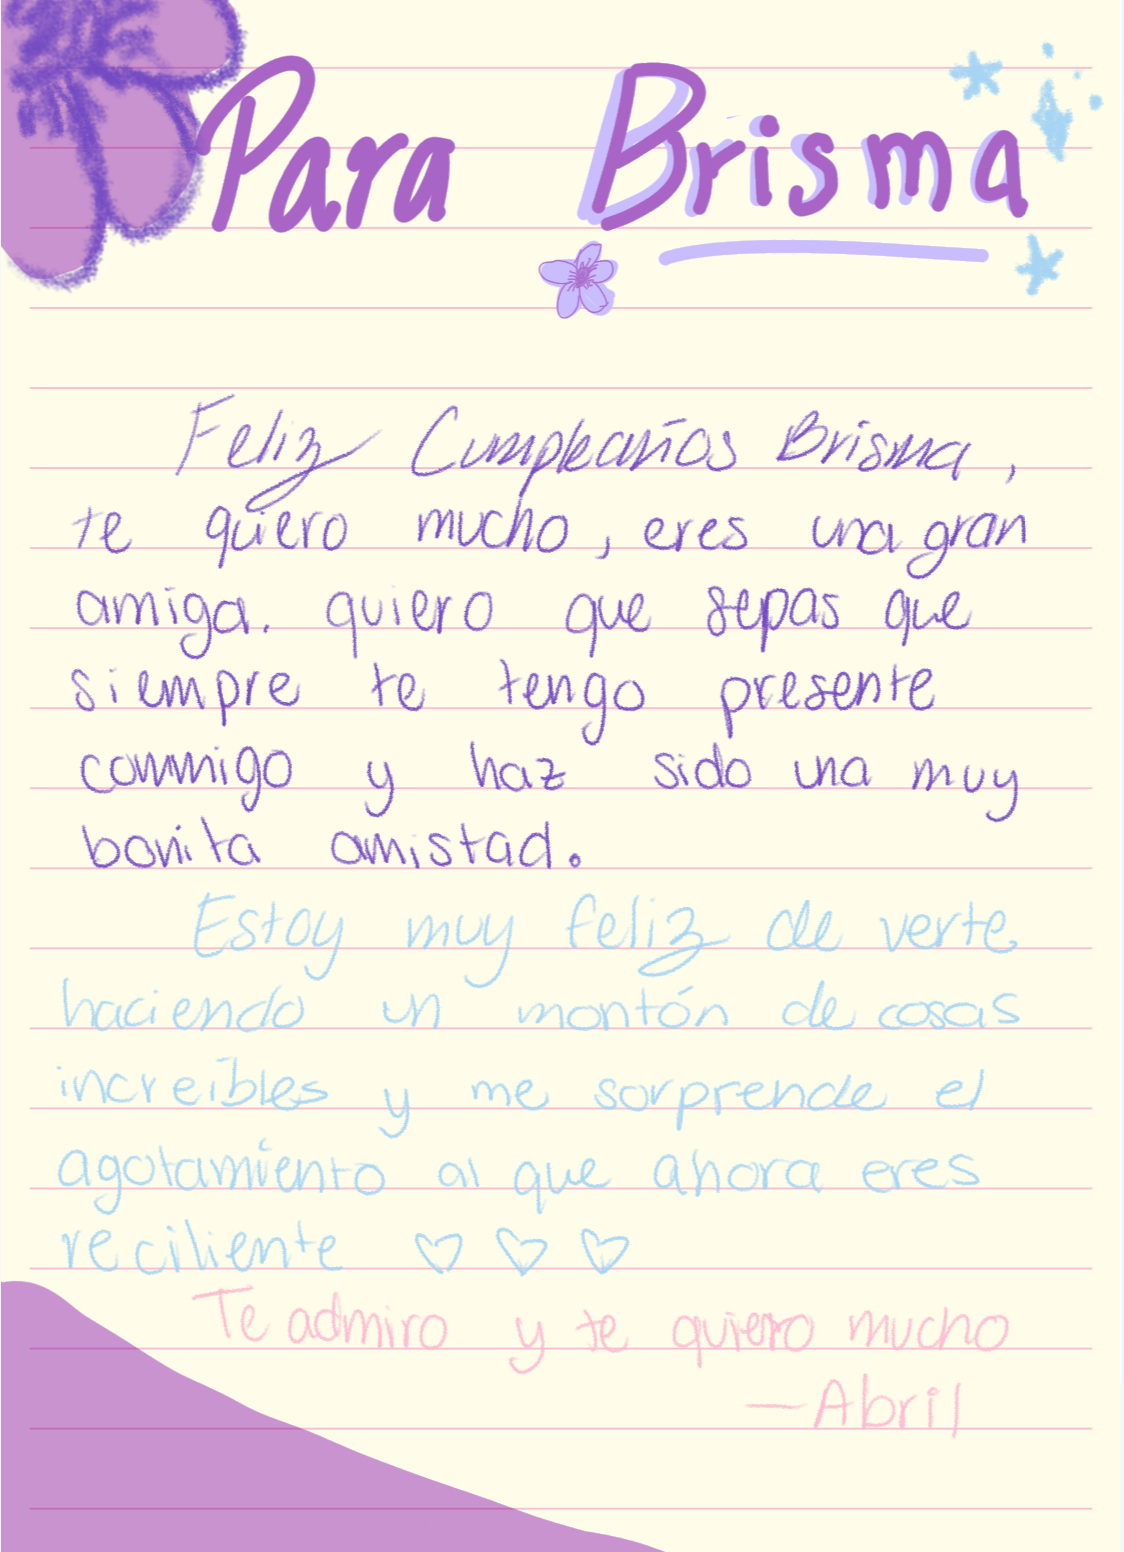 Para Brisma
Feliz Cumpleaños Brisma,
te quiero mucho, eres una gran
amiga. quiero que sepas que
siempre te tengo presente
conmigo y haz sido una muy
bonita amistad.
Estoy muy feliz de verte
haciendo un montón de cosas
increíbles y me sorprende el
agotamiento al que ahora eres
reciliente ♡ ♡ ♡
Te admiro y te quiero mucho
—Abril